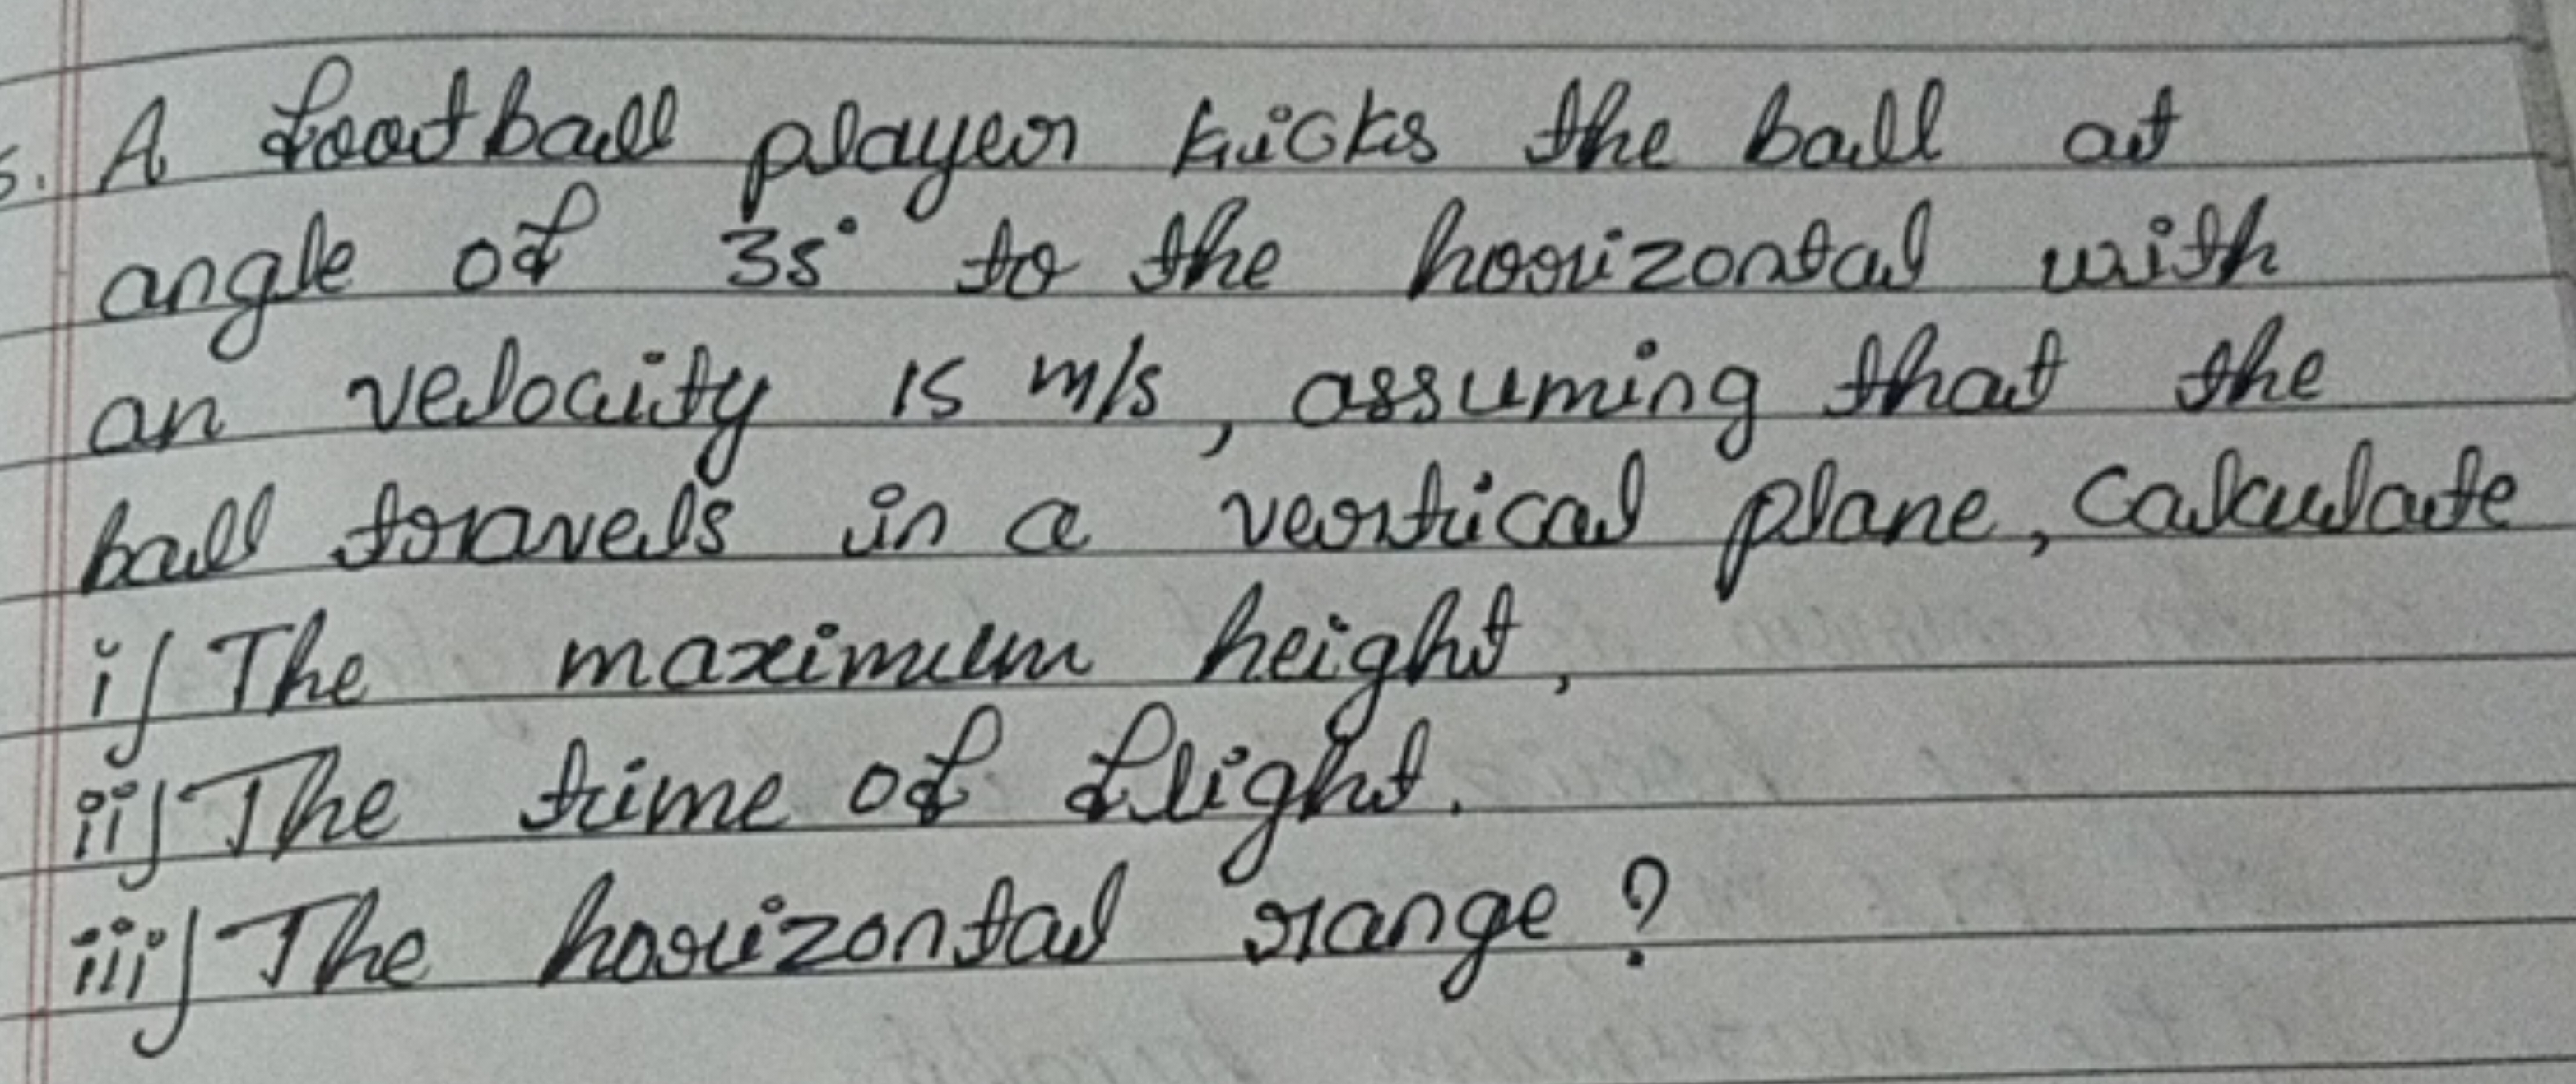 5. A football player kicks the ball at
angle of 35° to the horizontal with
an velocity 15 m/s, assuming that the
ball travels in a vertical plane, Calculate
i) The maximum height,
ii) The time of flight.
iii) The horizontal range?